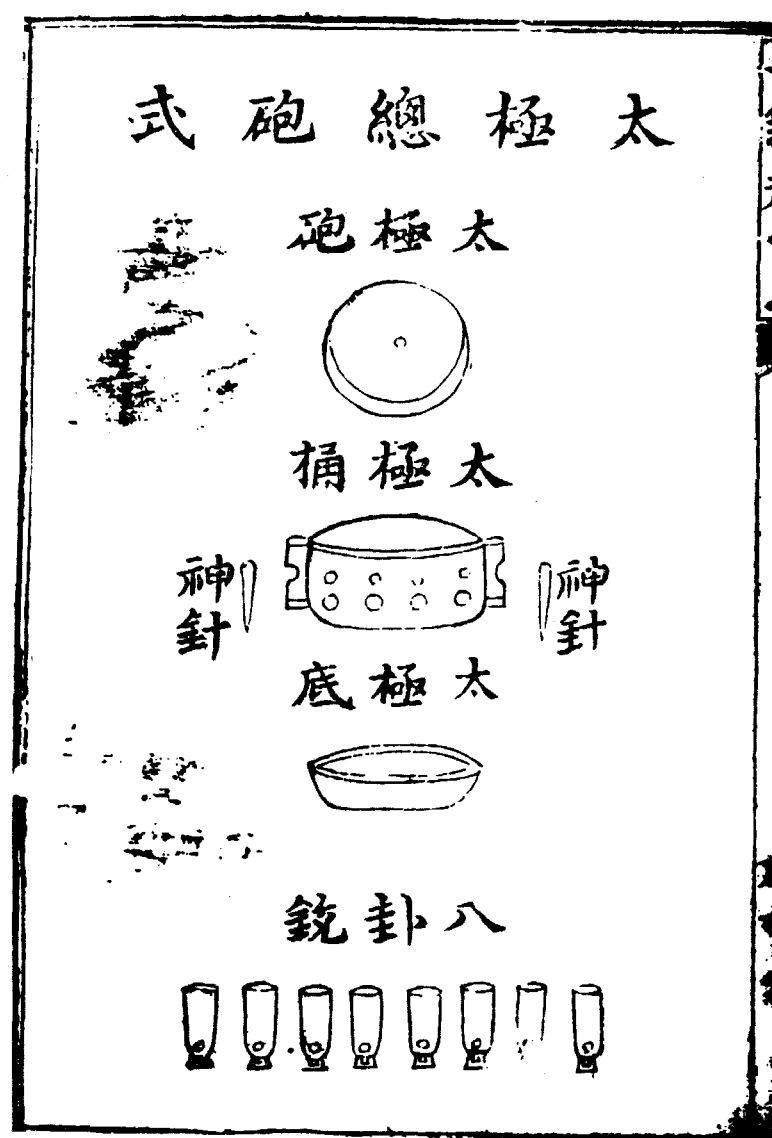 太極總砲式
太極砲
太極桶
神針
神針
太極底
八卦銃